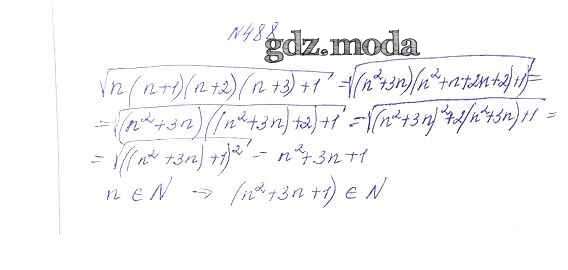 N488
gdz.moda
√(n(n+1)(n+2)(n+3)+1) = √((n²+3n)(n²+n+2n+2)+1) =
= √((n²+3n)((n²+3n)+2)+1) = √((n²+3n)²+2(n²+3n)+1) =
= √(((n²+3n)+1)²) = n²+3n+1
n ∈ N → (n²+3n+1) ∈ N